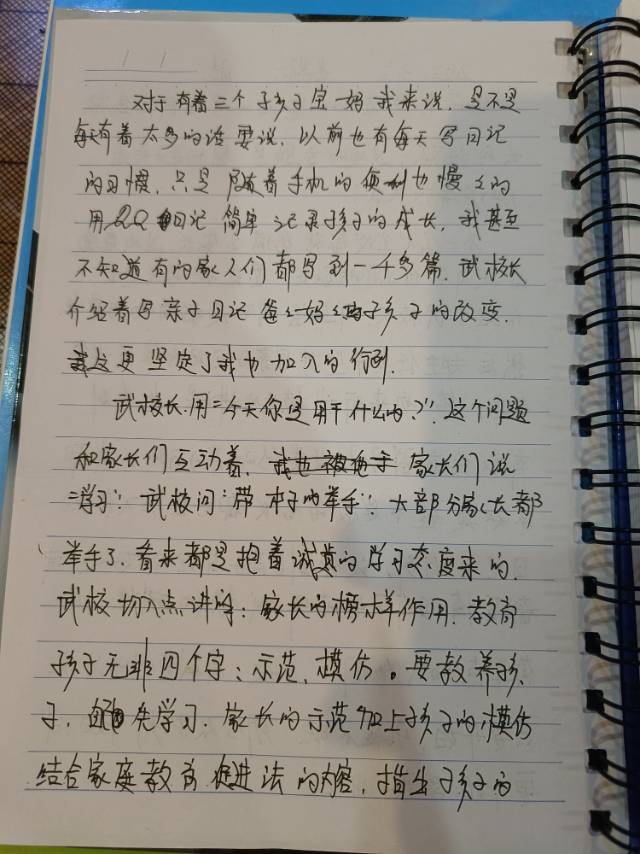 对于有着三个孩子宝妈我来说,是不是
每天有着太多的话要说,以前也有每天写日记
的习惯,只是随着手机的便利也慢々的
用QQ日记简单记录孩子的成长,我甚至
不知道有的家人们都写到一千多篇,武校长
介绍着写亲子日记爸々妈々和孩子的改变,
更坚定了我也加入的行列.
武校长用“今天你是用干什么的?”这个问题
和家长们互动着, 家长们说
“学习”武校问“带本子的举手”大部分家长都
举手了,看来都是抱着诚真的学习态度来的.
武校切入点讲的:家长的榜样作用.教育
孩子无非四个字:示范、模仿。要教养孩
子,先学习.家长的示范加上孩子的模仿
结合家庭教育促进法的内容,指出孩子的